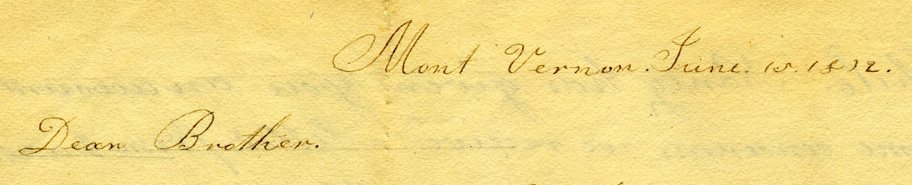 Mont Vernon. June. 15. 1812.
Dear Brother.